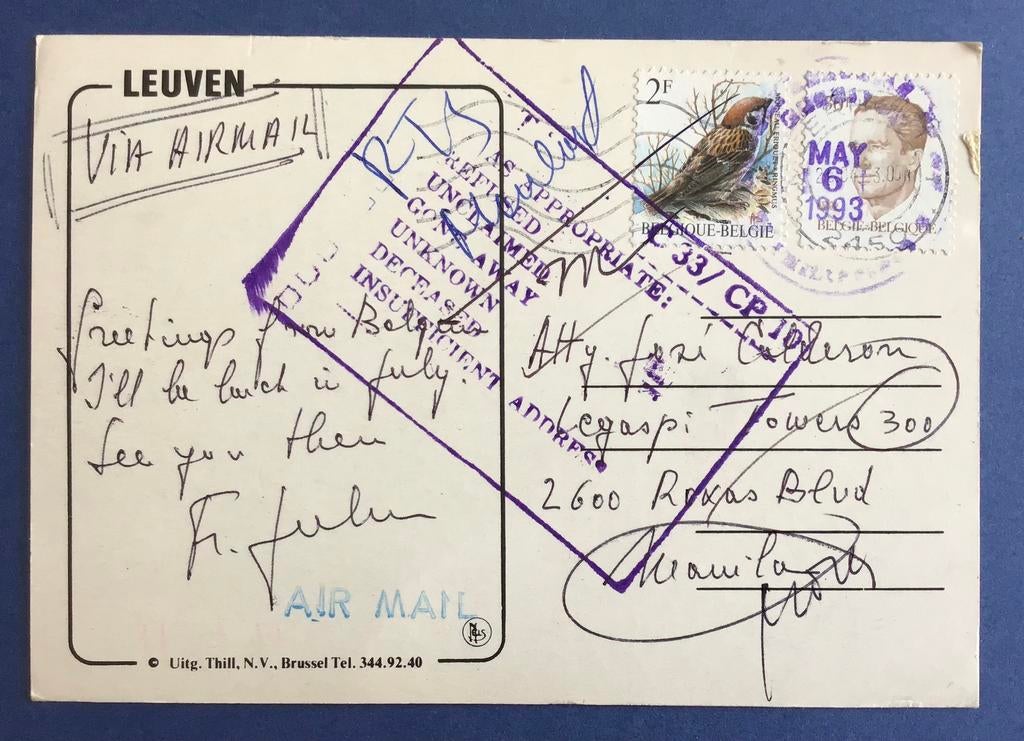 LEUVEN
VIA AIRMAIL
Greetings from Belgium
I'll be back in July.
See you then
Fr. John
AIR MAIL
© Uitg. Thill, N.V., Brussel Tel. 344.92.40
RTS
AS APPROPRIATE:
REFUSED
UNCLAIMED
GONE AWAY
UNKNOWN
DECEASED
INSUFFICIENT ADDRESS
C 33/ CP 10
2F
BELGIQUE-BELGIË
MAY
6
1993
BELGIË-BELGIQUE
Atty. José Calderon
Legaspi Towers 300
2600 Roxas Blvd
Manila